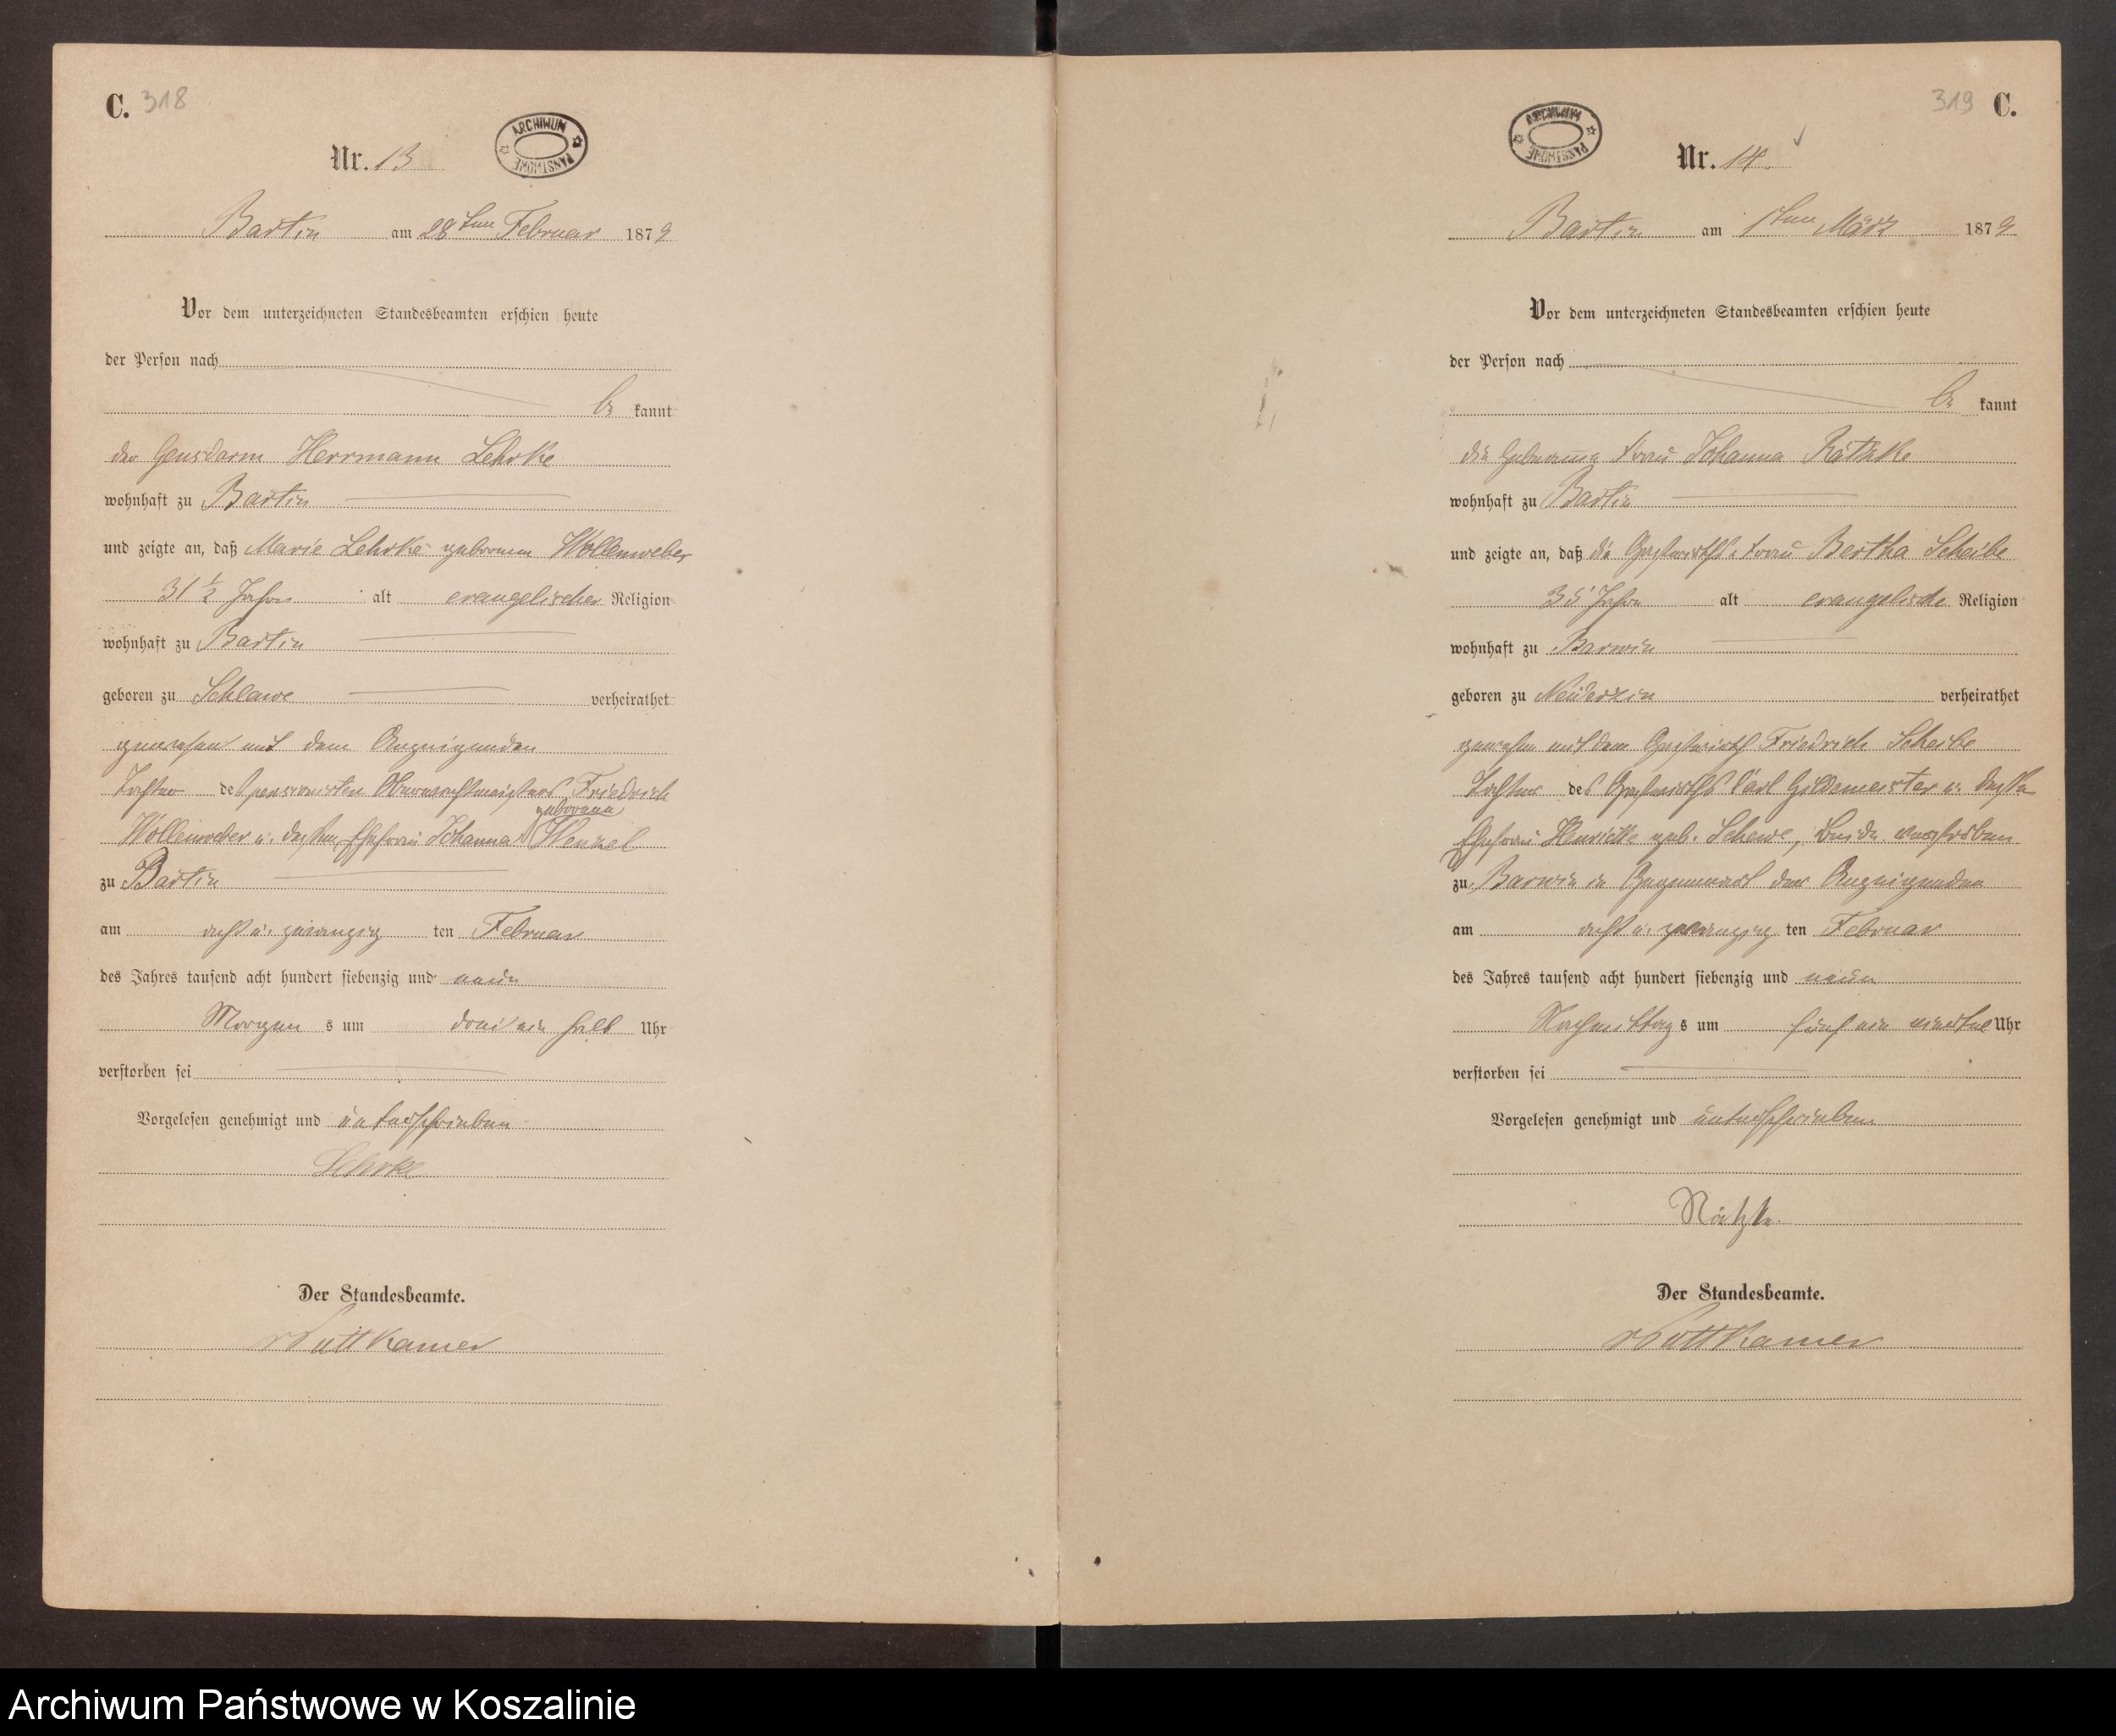 C. 318
ARCHIWUM PAŃSTWOWE
Nr. 13
Bartin am 28ten Februar 1879
Vor dem unterzeichneten Standesbeamten erschien heute
der Person nach
be kannt
der Gensdarm Herrmann Lehrke
wohnhaft zu Bartin
und zeigte an, daß Marie Lehrke geborene Wollenweber
31 ½ Jahre alt evangelischer Religion
wohnhaft zu Bartin
geboren zu Schlawe verheirathet
gewesen mit dem Anzeigenden
Tochter des pensionirten Oberwachtmeisters Friedrich
geborene
Wollenweber u. dessen Ehefrau Johanna Wenzel
zu Bartin
am acht u. zwanzig ten Februar
des Jahres tausend acht hundert siebenzig und neun
Morgen s um drei ein halb Uhr
verstorben sei
Vorgelesen genehmigt und unterschrieben
Lehrke
Der Standesbeamte.
v Puttkamer
319 C.
ARCHIWUM PAŃSTWOWE
Nr. 14
Bartin am 1ten März 1879
Vor dem unterzeichneten Standesbeamten erschien heute
der Person nach
be kannt
die Hebamme Frau Johanna Rätzke
wohnhaft zu Bartin
und zeigte an, daß die Gastwirths Frau Bertha Scheibe
35 Jahre alt evangelische Religion
wohnhaft zu Barwin
geboren zu Neuderzin verheirathet
gewesen mit dem Gastwirth Friedrich Scheibe
Tochter des Gastwirths Carl Gildemeister u. dessen
Ehefrau Henriette geb. Schewe, beide verstorben
zu Barwin in Gegenwart der Anzeigenden
am acht u. zwanzig ten Februar
des Jahres tausend acht hundert siebenzig und neun
Nachmittag s um fünf ein viertel Uhr
verstorben sei
Vorgelesen genehmigt und unterschrieben
Rätzke.
Der Standesbeamte.
v Puttkamer
Archiwum Państwowe w Koszalinie